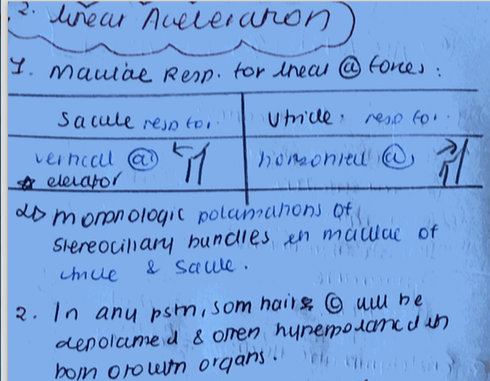 2. linear Aceleration
1. Maculae Resp. for linear @ forces:
Sacule resp for. Utricle. resp for.
vertical @ horizontal @
* elevator
Morphologic polarizations of
stereociliary bundles in maculae of
utricle & Sacule.
2. In any psm, som hairs © will be
depolarized & other hyperpolarized in
both otolith organs.